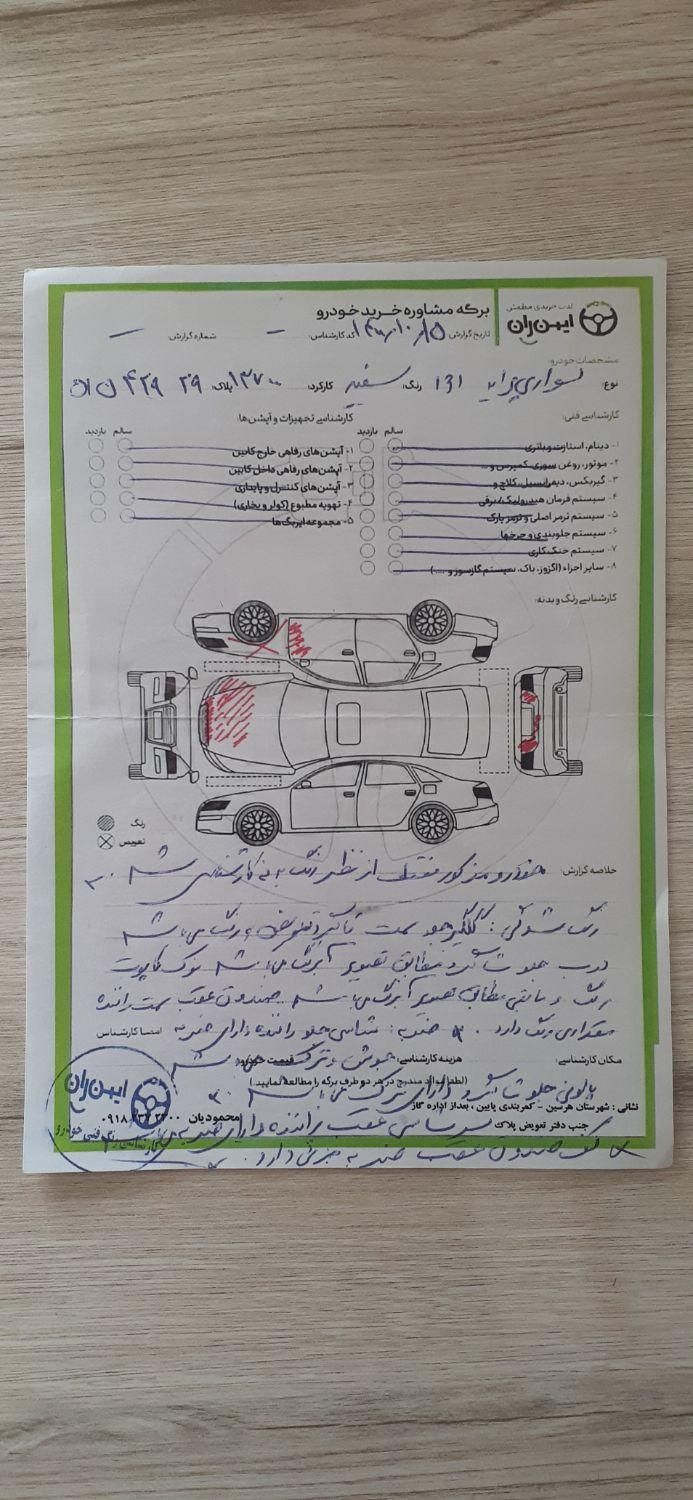 لذت خریدی مطمئن
ایمن ران
برگه مشاوره خرید خودرو
تاریخ گزارش: کد کارشناس: — شماره گزارش: —
مشخصات خودرو:
نوع: سواری پراید 131 رنگ: سفید کارکرد: پلاک: ۲۹ ۴۲۹
کارشناسی فنی:
سالم بازدید
۱- دینام، استارت و باتری
۲- موتور، روغن سوزی، کمپرس و ...
۳- گیربکس، دیفرانسیل، کلاچ و
۴- سیستم فرمان هیدرولیک/برقی
۵- سیستم ترمز اصلی و ترمز پارک
۶- سیستم جلوبندی و چرخها
۷- سیستم خنک کاری
۸- سایر اجزاء (اگزوز، باک، سیستم گازسوز و ....)
کارشناسی تجهیزات و آپشن‌ها:
سالم بازدید
۱- آپشن‌های رفاهی خارج کابین
۲- آپشن‌های رفاهی داخل کابین
۳- آپشن‌های کنترل و پایداری
۴- تهویه مطبوع (کولر و بخاری)
۵- مجموعه ایربگ‌ها
کارشناسی رنگ و بدنه:
رنگ
تعویض
خلاصه گزارش: خودرو مذکور فقط از نظر رنگ بدنه کارشناسی شد
رنگ شدگی: گلگیر جلو سمت شاگرد تعویض و رنگ می باشد
درب جلو شاگرد مطابق تصویر آبرنگ می باشد نوک کاپوت
رنگ و مابقی مطابق تصویر آبرنگ می باشد صندوق عقب سمت راننده
مقداری رنگ دارد. ضربه: شاسی جلو راننده دارای ضربه
امضا کارشناس
مکان کارشناسی: هزینه کارشناسی: قیمت خودرو:
جوش و ترک می باشد
(لطفا موارد مندرج در هر دو طرف برگه را مطالعه نمایید.)
پالونی جلو شاگرد دارای ترک می باشد
نشانی: شهرستان هرسین - کمربندی پایین، بعد از اداره گاز
جنب دفتر تعویض پلاک
محمودیان
سر شاسی عقب راننده دارای ضربه
کف صندوق عقب ضربه جزئی دارد.
ایمن ران